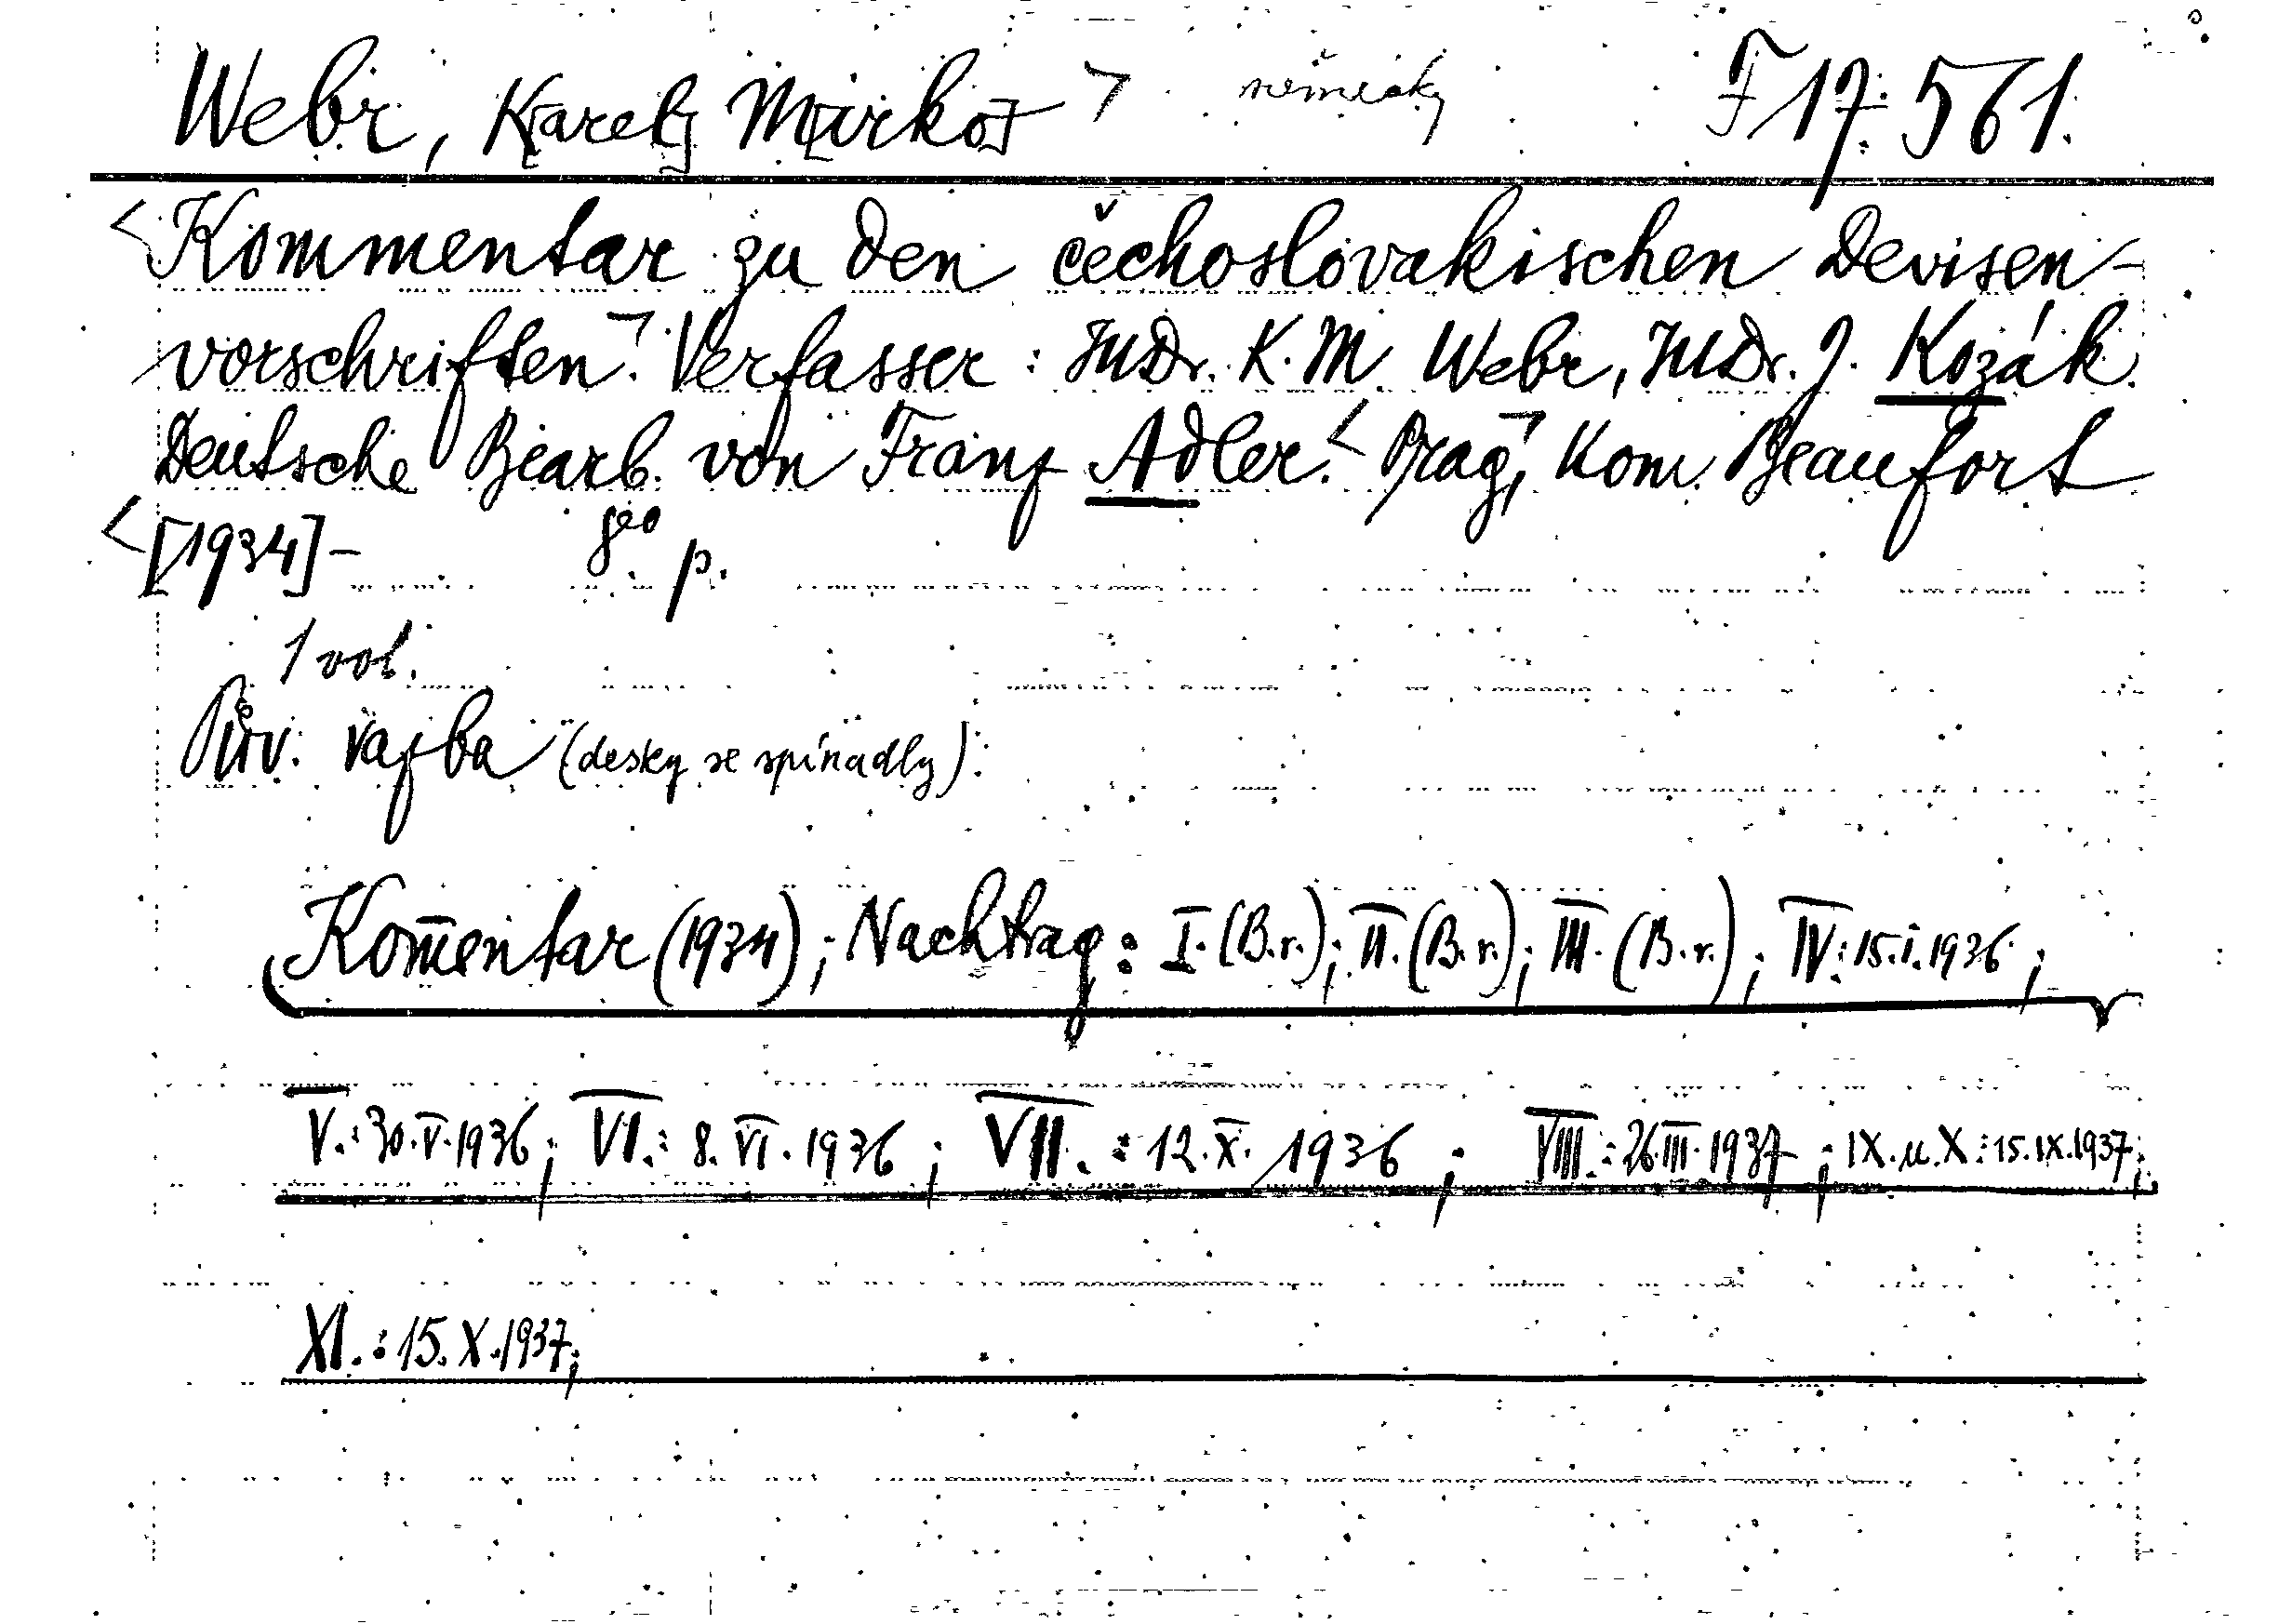 Webr, K[arel] M[irko] > německy F 17.561.
<Kommentar zu den čechoslovakischen Devisen-
vorschriften.> Verfasser: JUDr. K. M. Webr, JUDr. J. Kozák.
Deutsche Bearb. von Franz Adler. <Prag,> Kom. Beaufort
<[1934]- 8° p.
1 vol.
Pův. vazba (desky se spinadly).
Kom̄entar (1934); Nachtrag: I. (B.r.); II. (B.r.); III. (B.r.); IV.: 15.I.1936;
V.: 30.V.1936; VI.: 8.VI.1936; VII.: 12.X.1936; VIII.: 26.III.1937; IX.u.X.: 15.IX.1937;
XI.: 15.X.1937;